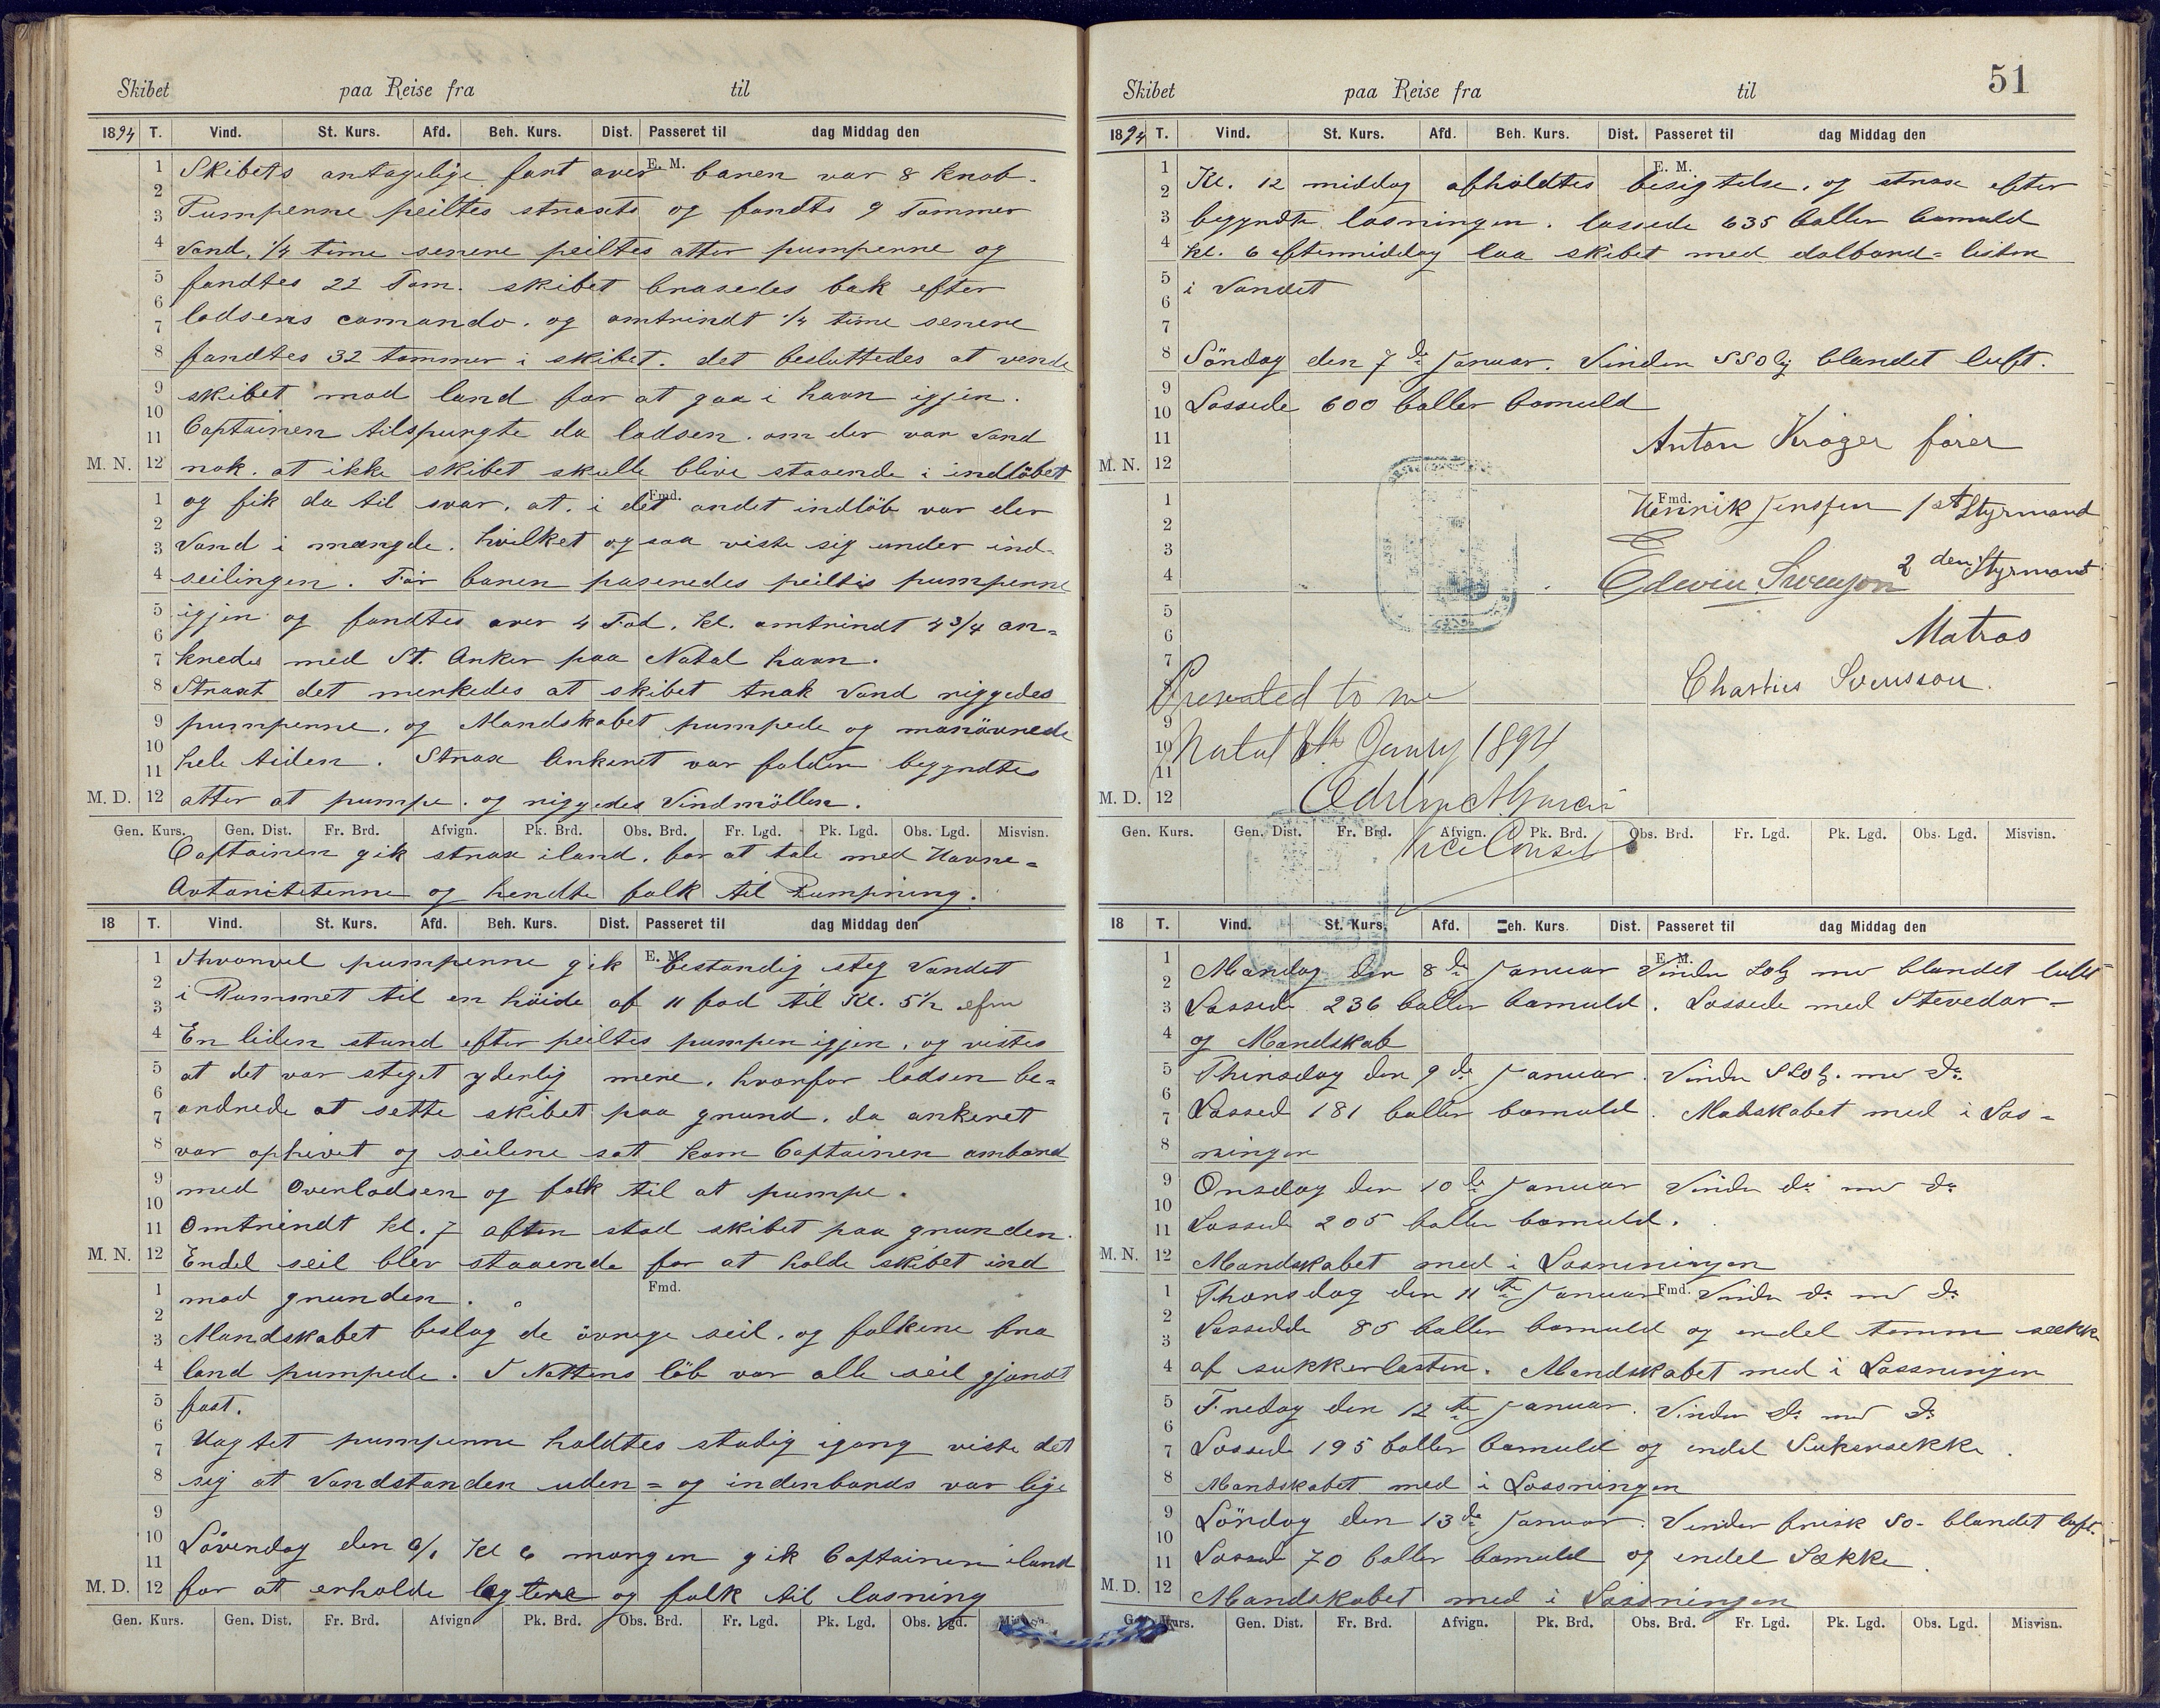 Skibet paa Reise fra til
1894 T. Vind. St. Kurs. Afd. Beh. Kurs. Dist. Passeret til dag Middag den
E. M.
Skibets antagelige fart over baren var 8 knob.
Pumperne peiltes straxts og fandts 9 Tommer
Vand, 1/4 time senere peiltes atter pumperne og
fandtes 22 Tom. skibet brasedes bak efter
lodsens comando. og omtrindt 1/4 time senere
fandtes 32 tommer i skibet. det besluttedes at vende
skibet mod land for at gaa i havn igjen.
Captainen tilspurgte da lodsen. om der var Vand
M. N. nok. at ikke skibet skulle blive staaende i indlöbet
Fmd.
og fik da til svar. at. i det andet indlöb var der
Vand i mængde. hvilket ogsaa viste sig under ind-
seilingen. För baren paseredes peiltes pumperne
igjen og fandtes over 4 Fod. Kl. omtrindt 4 3/4 an=
kredes med St. Anker paa Natal havn.
Straxt det merkedes at skibet trak Vand riggedes
pumperne. og Mandskabet pumpede og manövrede
hele tiden. Strax Ankeret var falden begyndtes
M. D. atter at pumpe. og riggedes Vindmöllen.
Gen. Kurs. Gen. Dist. Fr. Brd. Afvign. Pk. Brd. Obs. Brd. Fr. Lgd. Pk. Lgd. Obs. Lgd. Misvisn.
Captainen gik strax iland. for at tale med Havne=
Avtoritetene og hendte folk til Pumpning.
18 T. Vind. St. Kurs. Afd. Beh. Kurs. Dist. Passeret til dag Middag den
E. M.
Ihvorvel pumperne gik bestandig steg Vandet
i Rummet til en höide af 11 fod til Kl. 5 1/2 efm
En liden stund efter peiltes pumpen igjen, og vistes
at det var steget yderlig mere. hvorfor lodsen be=
ordrede at sette skibet paa grund. da ankeret
var ophivet og seilene sat kom Captainen ombord
med Overlodsen og folk til at pumpe.
Omtrindt kl. 7 aften stod skibet paa grunden.
M. N. Endel seil blev staaende for at holde skibet ind
Fmd.
mod grunden.
Mandskabet beslog de övrige seil. og folkene fra
land pumpede. I Nattens löb var alle seil gjordt
fast.
Uagtet pumperne holdtes stadig igang viste det
sig at Vandstanden uden= og indenbords var lige
Lövendag den 6/1 Kl 6 morgen gik Captainen iland
M. D. for at erholde legtere og folk til losning
Gen. Kurs. Gen. Dist. Fr. Brd. Afvign Pk. Brd. Obs. Brd. Fr. Lgd. Pk. Lgd. Obs. Lgd. Misvisn.
51
Skibet paa Reise fra til
1894 T. Vind. St. Kurs. Afd. Beh. Kurs. Dist. Passeret til dag Middag den
E. M.
Kl. 12 middag afholdtes besigtelse. og strax efter
begyndte losningen. lossede 635 baller bomuld
kl. 6 eftermiddag laa skibet med dolbord=listen
i Vandet
Söndag den 7de Januar. Vinden SSO lig blandet luft.
Lossede 600 baller bomuld
Anton Kröger förer
M. N.
Fmd.
Henrik Jenssen 1st Styrmand
Edwin Swenson 2den Styrmand
Matros
Charlies Svensson.
Presented to me
Natal 8th January 1894
M. D.
Vice Consul
Gen. Kurs. Gen. Dist. Fr. Brd. Afvign. Pk. Brd. Obs. Brd. Fr. Lgd. Pk. Lgd. Obs. Lgd. Misvisn.
18 T. Vind. St. Kurs. Afd. Beh. Kurs. Dist. Passeret til dag Middag den
E. M.
Mandag den 8de Januar Vinden SOlg med blandet luft
Lossed 236 baller bomuld. Lossede med Stevedor-
og Mandskab
Thirsdag den 9de Januar. Vinden SSOlg. med do
Lossed 181 baller bomuld. Madskabet med i Los=
ningen
Onsdag den 10de Januar Vinden do med do
Lossed 205 baller bomuld.
M. N. Mandskabet med i Losningen
Fmd.
Thorsdag den 11te Januar Vinden do med do
Lossedde 85 baller bomuld og endel tomme sække
af sukkerlasten. Mandskabet med i Lossningen
Fredag den 12te Januar. Vinden do med do
Lossede 195 baller bomuld og endel Sukersekke.
Mandskabet med i Lossningen
Löndag den 13de Januar. Vinden frisk SO- blandet luft.
Lossed 70 baller bomuld og endel Sække
M. D. Mandskabet med i Lossningen
Gen. Kurs. Gen. Dist. Fr. Brd. Afvign. Pk. Brd. Obs. Brd. Fr. Lgd. Pk. Lgd. Obs. Lgd. Misvisn.